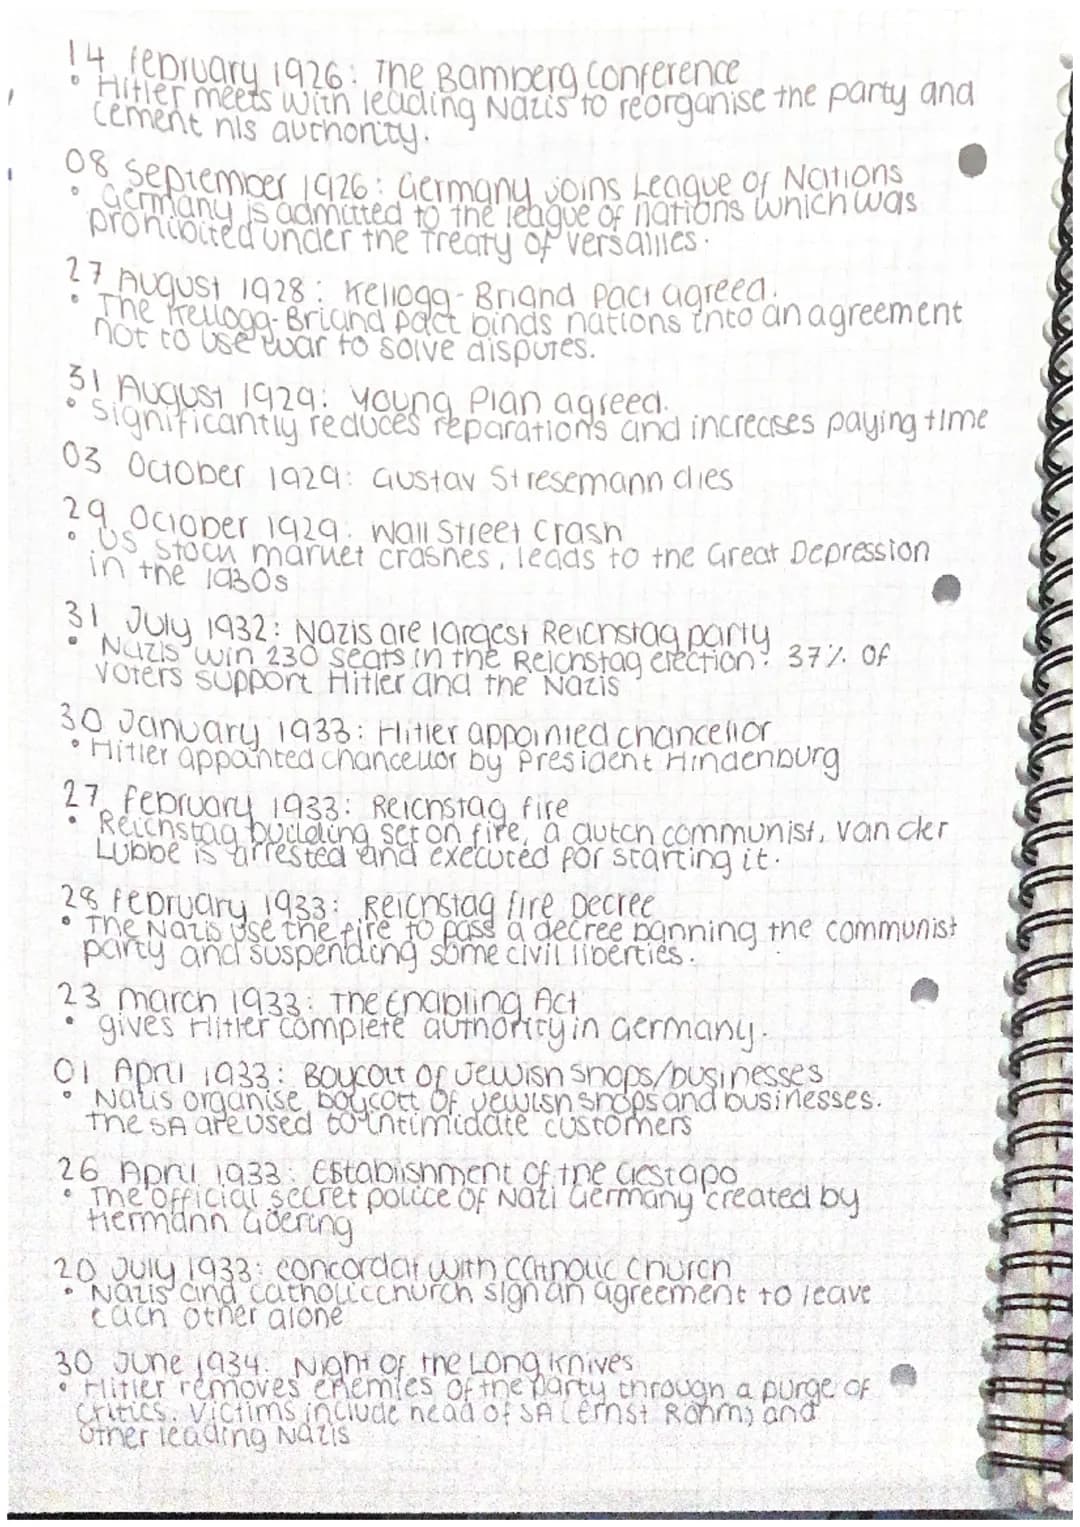 14 february 1926: The Bamberg Conference
• Hitler meets with leading Nazis to reorganise the party and
cement his authority.
08 September 1926: Germany joins League of Nations
• Germany is admitted to the league of nations which was
prohibited under the Treaty of Versailles.
27 August 1928: Kellogg-Briand Pact agreed.
• The Kellogg-Briand pact binds nations into an agreement
not to use war to solve disputes.
31 August 1929: Young Plan agreed.
• significantly reduces reparations and increases paying time
03 October 1929: Gustav Stresemann dies
29 October 1929: Wall Street Crash
• US stock market crashes, leads to the Great Depression
in the 1930s
31 July 1932: Nazis are largest Reichstag party
• Nazis win 230 seats in the Reichstag election. 37% of
voters support Hitler and the Nazis
30 January 1933: Hitler appointed chancellor
• Hitler appointed chancellor by President Hindenburg
27 february 1933: Reichstag fire
• Reichstag building set on fire, a dutch communist, van der
Lubbe is arrested and executed for starting it.
28 february 1933: Reichstag fire Decree
• The Nazis use the fire to pass a decree banning the communist
party and suspending some civil liberties.
23 march 1933: The Enabling Act
• gives Hitler complete authority in Germany.
01 April 1933: Boycott of Jewish shops/businesses
• Nazis organise boycott of jewish shops and businesses.
The SA are used to intimidate customers
26 April 1933: Establishment of the Gestapo
• The official secret police of Nazi Germany created by
Hermann Göering
20 July 1933: concordat with catholic church
• Nazis and catholic church sign an agreement to leave
each other alone
30 June 1934: Night of the Long knives
• Hitler removes enemies of the party through a purge of
critics. Victims include head of SA (Ernst Röhm) and
other leading Nazis